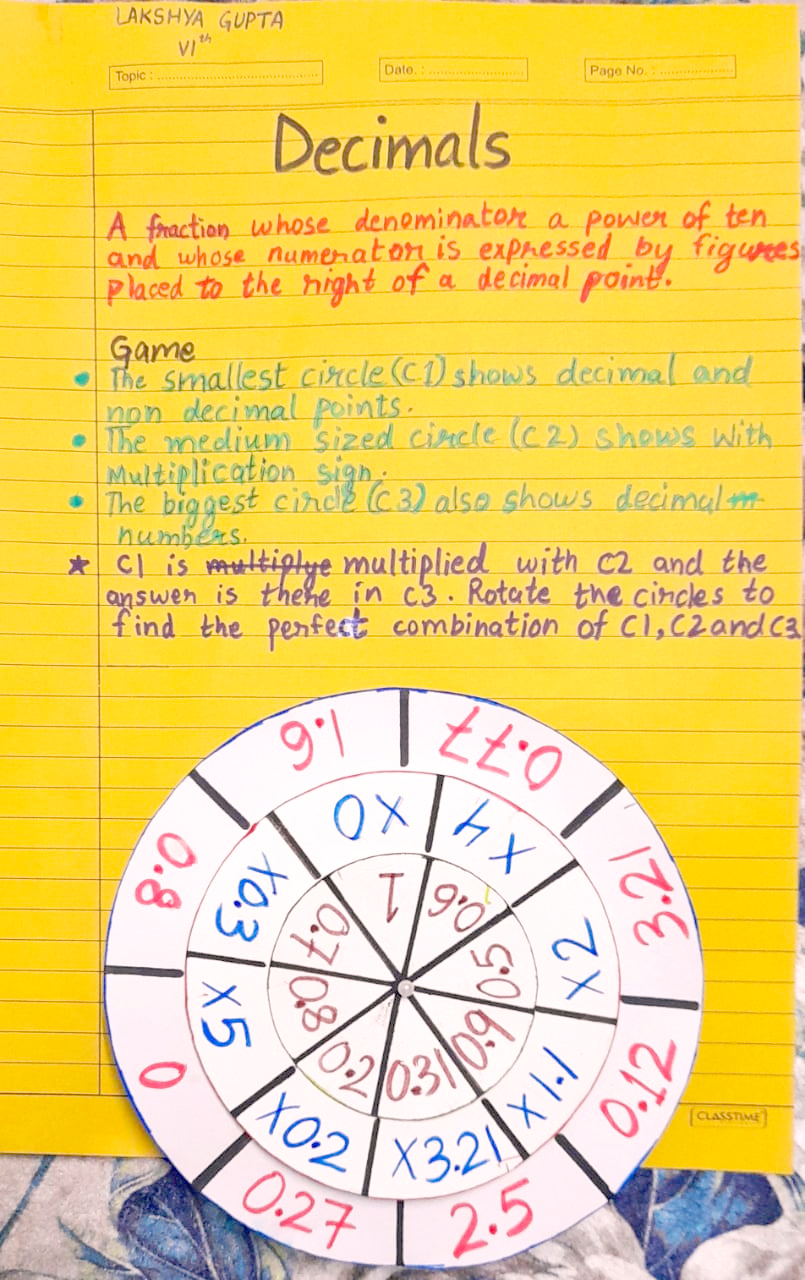 LAKSHYA GUPTA
VIth
Topic : ........................................
Date. : ........................
Page No. : ..................
Decimals
A fraction whose denominator a power of ten
and whose numerator is expressed by figures
placed to the right of a decimal point.
Game
• The smallest circle (C1) shows decimal and
non decimal points.
• The medium sized circle (C2) shows With
Multiplication sign.
• The biggest circle (C3) also shows decimal m
numbers.
★ C1 is multiplye multiplied with C2 and the
answer is there in C3. Rotate the circles to
find the perfect combination of C1, C2 and C3
1.6
0.77
3.21
0.12
2.5
0.27
0
0.8
X0
X4
X2
X1.1
X3.21
X0.2
X5
X0.3
1
0.6
0.5
0.9
0.31
0.2
0.8
0.7
CLASSTIME